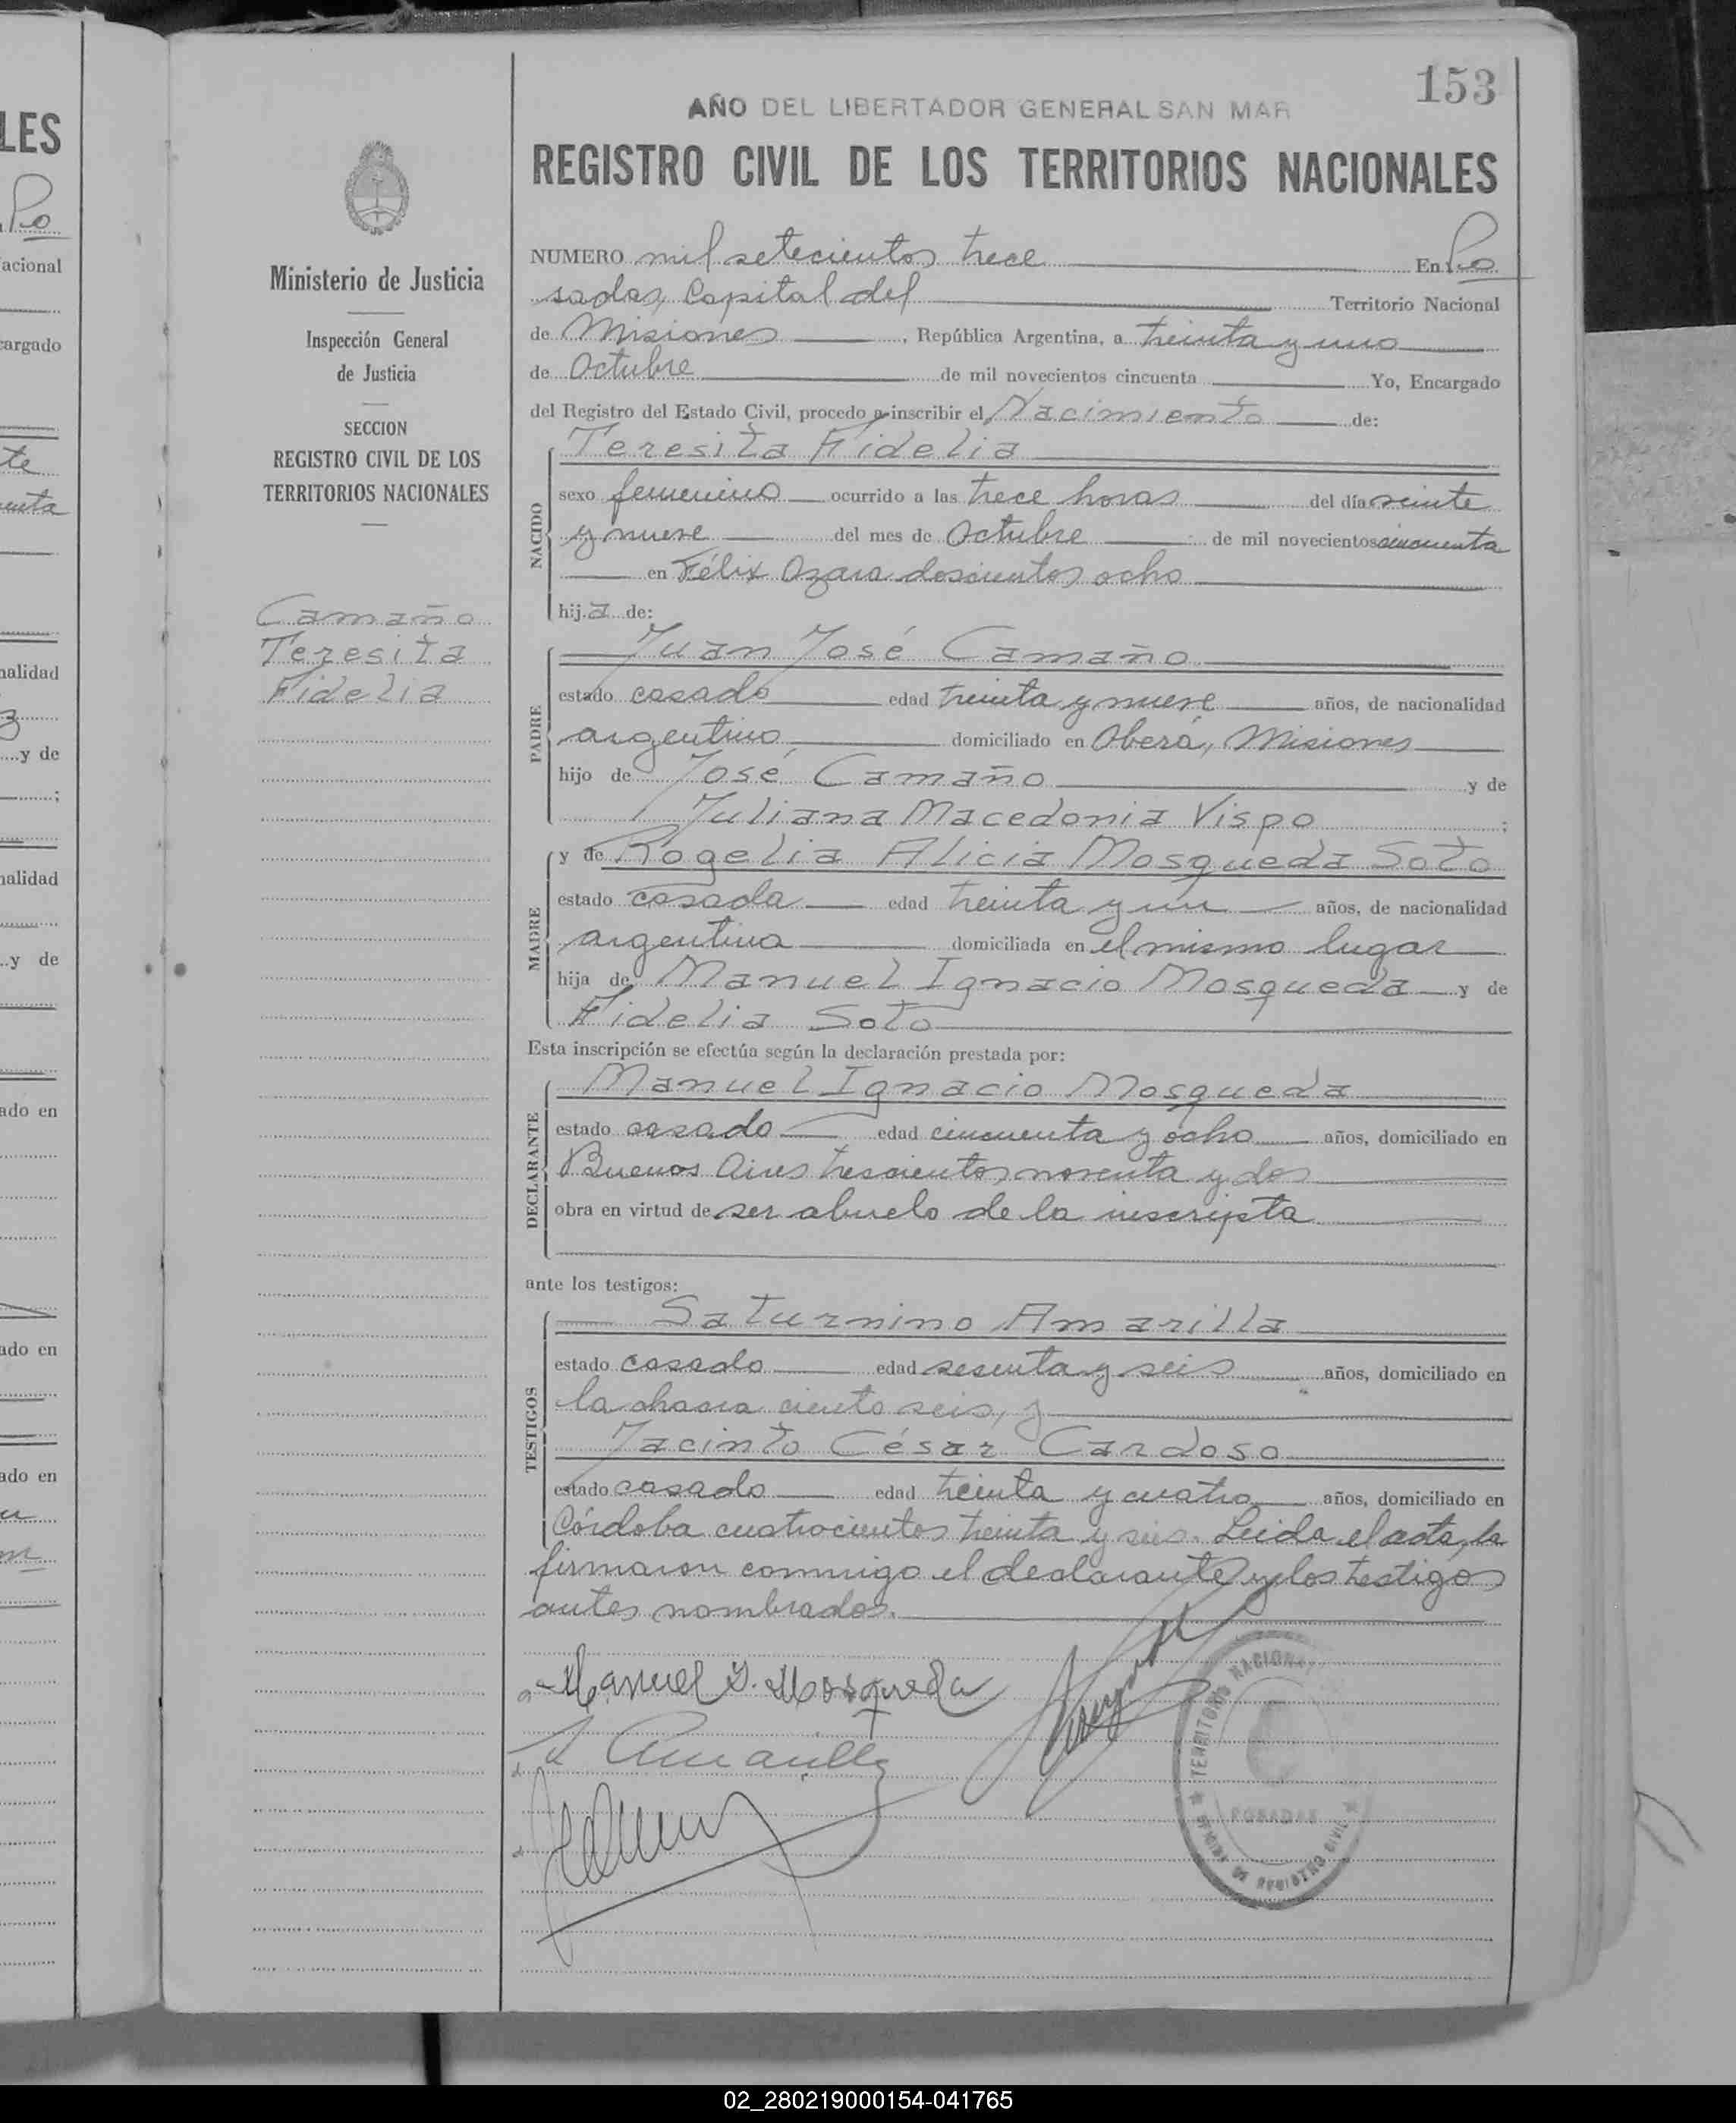 153
AÑO DEL LIBERTADOR GENERAL SAN MAR
REGISTRO CIVIL DE LOS TERRITORIOS NACIONALES
Ministerio de Justicia
Inspección General
de Justicia
SECCION
REGISTRO CIVIL DE LOS
TERRITORIOS NACIONALES
Camaño
Teresita
Fidelia
NUMERO mil setecientos trece En Po
sadas, Capital del Territorio Nacional
de Misiones, República Argentina, a treinta y uno
de Octubre de mil novecientos cincuenta Yo, Encargado
del Registro del Estado Civil, procedo a inscribir el Nacimiento de:
NACIDO
Teresita Fidelia
sexo femenino ocurrido a las trece horas del día veinte
y nueve del mes de Octubre de mil novecientos cincuenta
en Félix Azara doscientos ocho
hija de:
PADRE
Juan José Camaño
estado casado edad treinta y nueve años, de nacionalidad
argentino domiciliado en Oberá, Misiones
hijo de José Camaño y de
Juliana Macedonia Vispo ;
MADRE
y de Rogelia Alicia Mosqueda Soto
estado casada edad treinta y un años, de nacionalidad
argentina domiciliada en el mismo lugar
hija de Manuel Ignacio Mosqueda y de
Fidelia Soto
Esta inscripción se efectúa según la declaración prestada por:
DECLARANTE
Manuel Ignacio Mosqueda
estado casado edad cincuenta y ocho años, domiciliado en
Buenos Aires trescientos noventa y dos
obra en virtud de ser abuelo de la inscripta
ante los testigos:
TESTIGOS
Saturnino Amarilla
estado casado edad sesenta y seis años, domiciliado en
la chacra ciento seis, y
Jacinto César Cardoso
estado casado edad treinta y cuatro años, domiciliado en
Córdoba cuatrocientos treinta y seis. Leida el acta, la
firmaron conmigo el declarante y los testigos
antes nombrados.
Manuel I. Mosqueda
S Amarilla
TERRITORIO NACIONAL
POSADAS
REGISTRO CIVIL
LES
Po
acional
cargado
te
enta
nalidad
y de
nalidad
y de
ado en
ado en
ado en
02_280219000154-041765